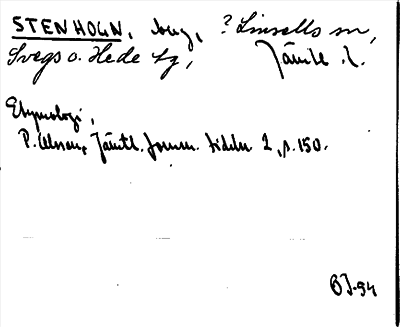 STENHOGN, berg, ? Linsells sn,
Svegs o. Hede tg, Jämtl. l.
Etymologi,
P. Olsson, Jämtl. fornm. tidskr 2, s. 150.
BJ-94